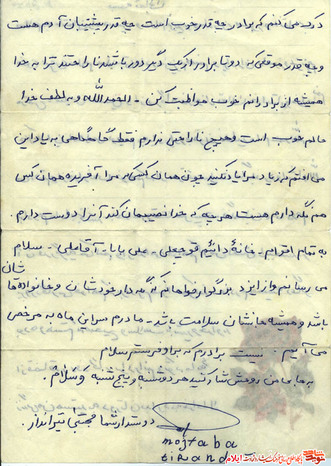 درک می کنم که برادر چه قدر خوب است چه قدر پشتیبان آدم هست
و چه قدر موقعی که دو تا برادر از یک دیگر دور باشند ناراحتند ترا به خدا
همیشه از برادرانم خوب مواظبت کن. الحمدالله و به لطف خدا
حالم خوب است و هیچ ناراحتی ندارم فقط گاهگاهی به یاد این
می افتم که زیاد مرا یاد نکنید چون همان کسی که مرا آفریده همان کس
هم نگه دارم هست هر چه که خدا نصیبمان کند آنرا دوست دارم.
به تمام اقوام. خانهٔ دائیم قوچعلی. علی بابا. آقاعلی. سلام
می رسانم و از ایزد بزرگوار خواهانم که نگهدار خودشان و خانواده‌ها شان
باشد و همیشه حالشان سلامت باشد. مادرم سر این ماه به مرخصی
می آیم. برادرم که برادر سلام
به ماماجان رومش شاد کنید هر دوشنبه و پنج شنبه و السلام.
دوستدار شما مجتبی تیرانداز.
mojtaba
tirand
ایلام